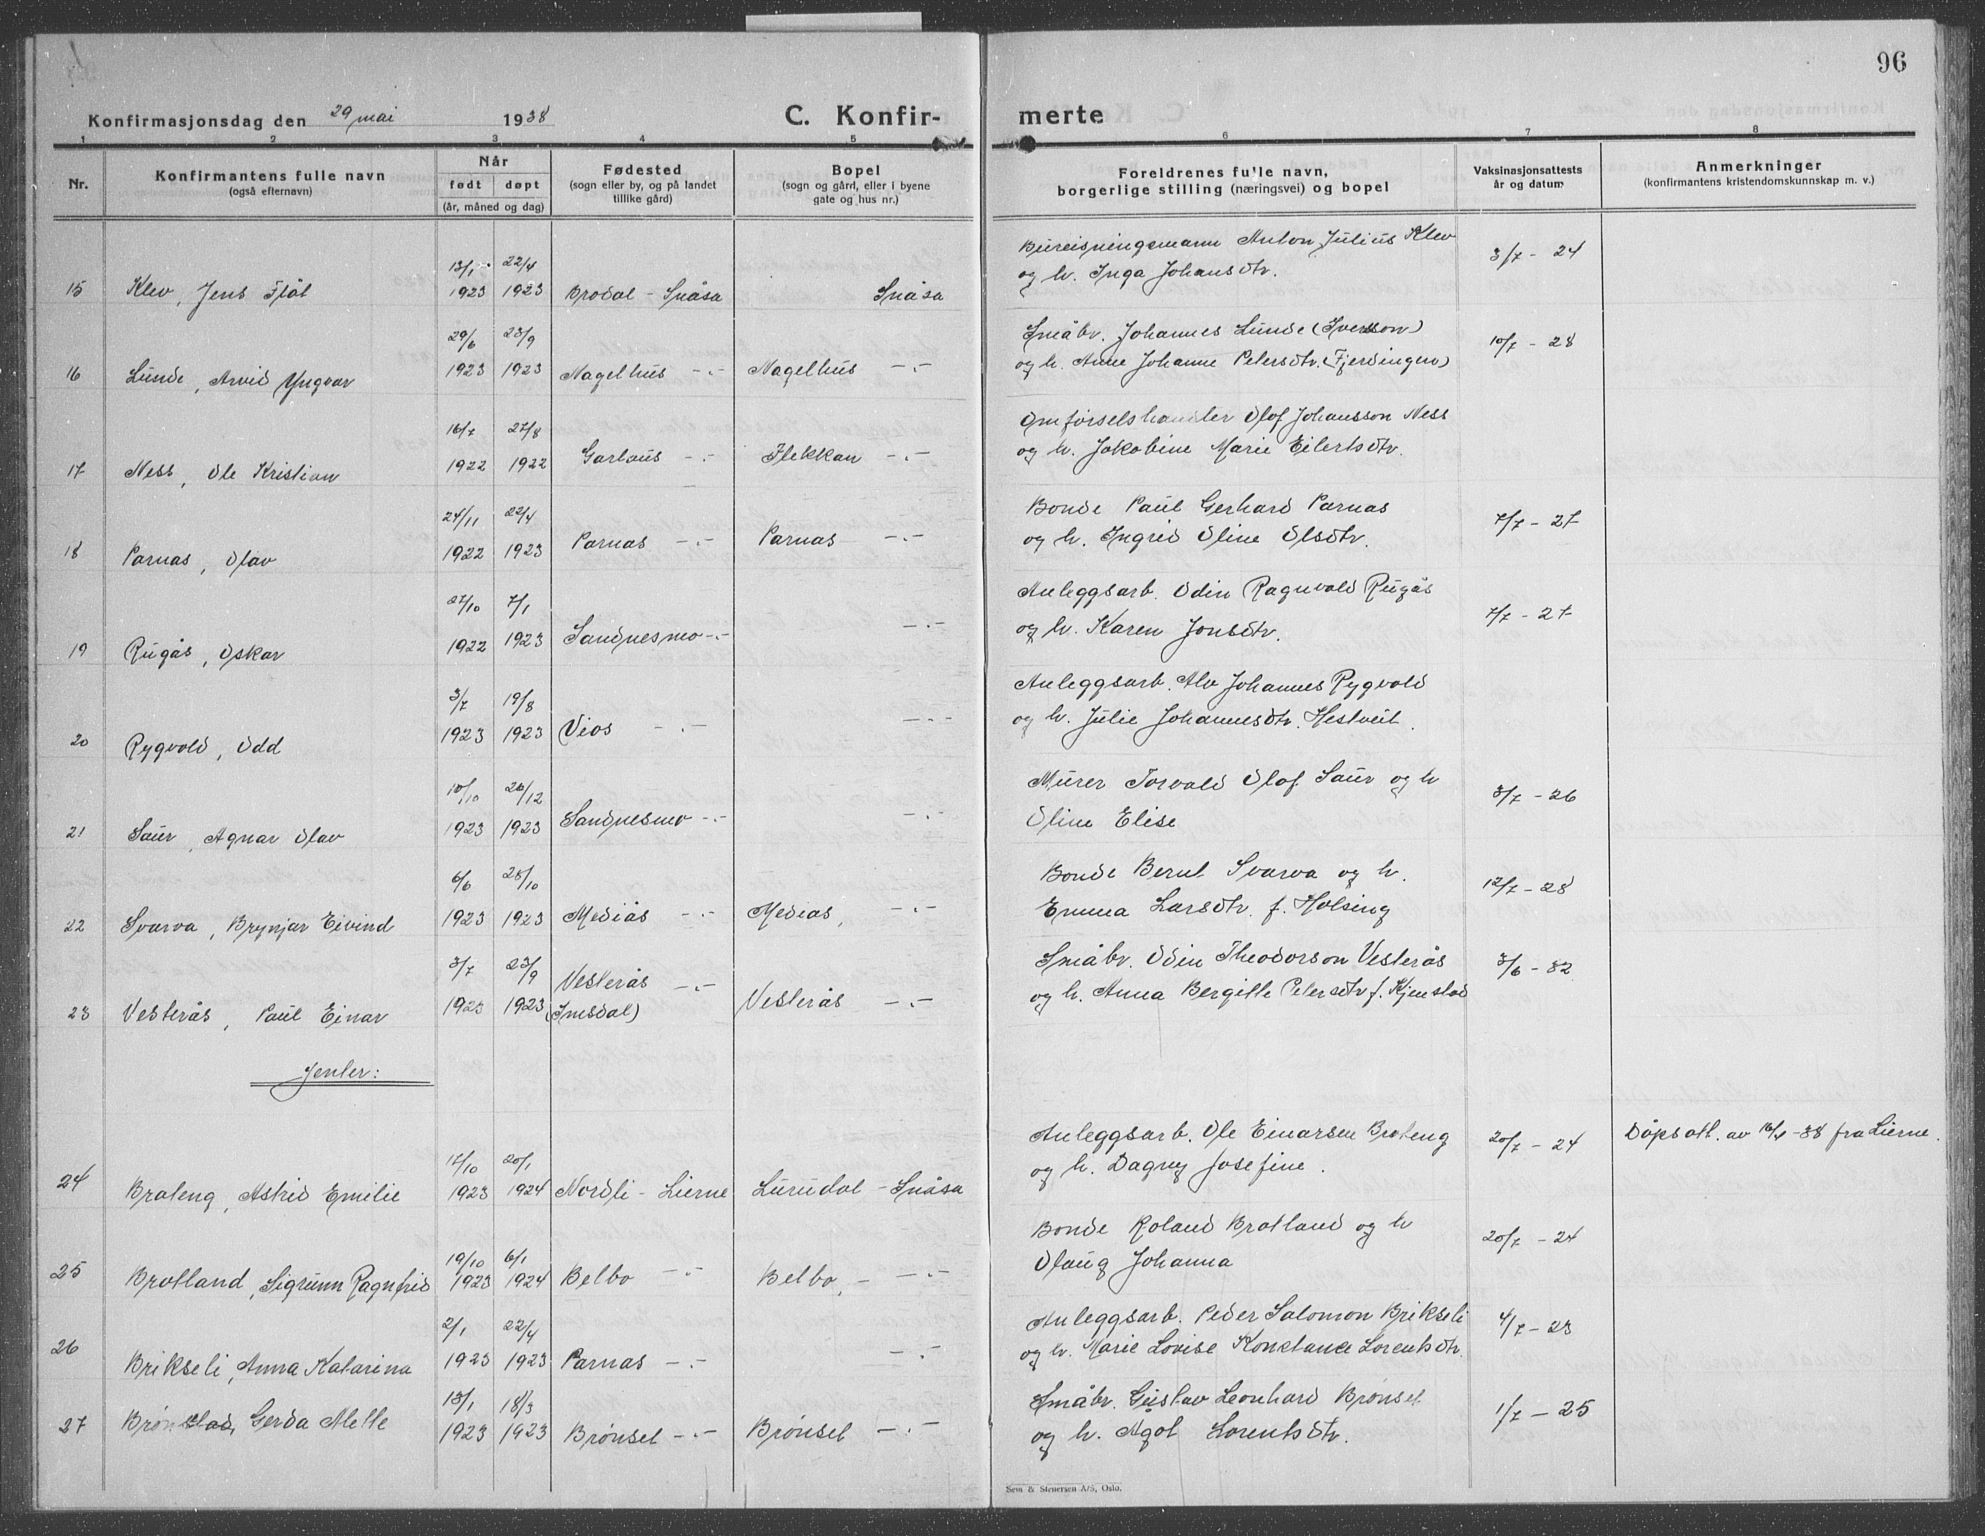 96
Konfirmasjonsdag den 29 mai 1938
C. Konfir-
merte
1 2 3 4 5 6 7 8
Nr.
Konfirmantens fulle navn
(også efternavn)
Når
født døpt
(år, måned og dag)
Fødested
(sogn eller by, og på landet
tillike gård)
Bopel
(sogn og gård, eller i byene
gate og hus nr.)
Foreldrenes fulle navn,
borgerlige stilling (næringsvei) og bopel
Vaksinasjonsattests
år og datum
Anmerkninger
(konfirmantens kristendomskunnskap m. v.)
13/1 22/4 Bureisningsmann Anton Julius Klev 3/7 - 24
15 Klev, Jens Fjøl 1923 1923 Brodal - Snåsa Snåsa og h. Inga Johansdtr.
29/6 23/9 Småbr. Johannes Lunde (Iversson) 10/7 - 28
16 Lunde, Arvid Yngvar 1923 1923 Nagelhus -.- Nagelhus -.- og h. Anne Johanne Petersdtr. (Fjerdingen)
16/7 27/8 Omførselshandler Olof Johansson Ness
17 Ness, Ole Kristian 1922 1922 Garlaus -.- Flekkan -.- og h. Jakobine Marie Eilertsdtr.
24/11 22/4 Bonde Paul Gerhard Parnas 7/7 - 27
18 Parnas, Olav 1922 1923 Parnas -.- Parnas -.- og h. Ingrid Oline Olsdtr.
27/10 7/1 Anleggsarb. Odin Ragnvald Rugås 7/7 - 27
19 Rugås, Oskar 1922 1923 Sandnesmo -.- -.- og h. Karen Jonsdtr.
3/7 19/8 Anleggsarb. Alv Johannes Rygvold
20 Rygvold, Odd 1923 1923 Vios -.- -.- og h. Julie Johannesdtr. Hestveit.
10/10 26/12 Murer Torvald Olof Saur og h 3/7 - 26
21 Saur, Agnar Olav 1923 1923 Sandnesmo -.- -.- Oline Elise
6/6 28/10 Bonde Bernt Svarva og h. 12/7 - 28
22 Svarva, Brynjar Eivind 1923 1923 Mediås -.- Medias, -.- Emma Larsdtr. f. Holsing
3/7 23/9 Vesterås -.- Småbr. Odin Theodorson Vesterås 3/6 - 32
23 Vesterås, Paul Einar 1923 1923 (Imsdal) Vesterås -.- og h. Anna Bergitte Petersdtr f. Kjenstad
Jenter:
17/10 20/1 Anleggsarb. Ole Einarsen Brateng 20/7 - 24 Dåpsatt. av 16/4 -38 fra Lierne.
24 Brateng, Astrid Emilie 1923 1924 Nordli - Lierne Lurudal - Snåsa og h. Dagny Josefine.
19/10 6/1 Bonde Roland Bratland og h 20/7 - 24
25 Bratland, Sigrunn Ragnfrid 1923 1924 Belbo -.- Belbo, -.- Olaug Johanna
2/1 22/4 Anleggsarb. Peder Salomon Brikseli 4/7 - 23
26 Brikseli, Anna Katarina 1923 1923 Parnas -.- -.- og h. Marie Lovise Konstance Lorentsdtr.
13/1 18/3 Småbr. Gustav Leonhard Brønset 1/7 - 25
27 Brønstad, Gerda Mette 1923 1923 Brønset -.- Brønset -.- og h. Agot Lorentsdtr.
Sem & Stenersen A/S, Oslo.